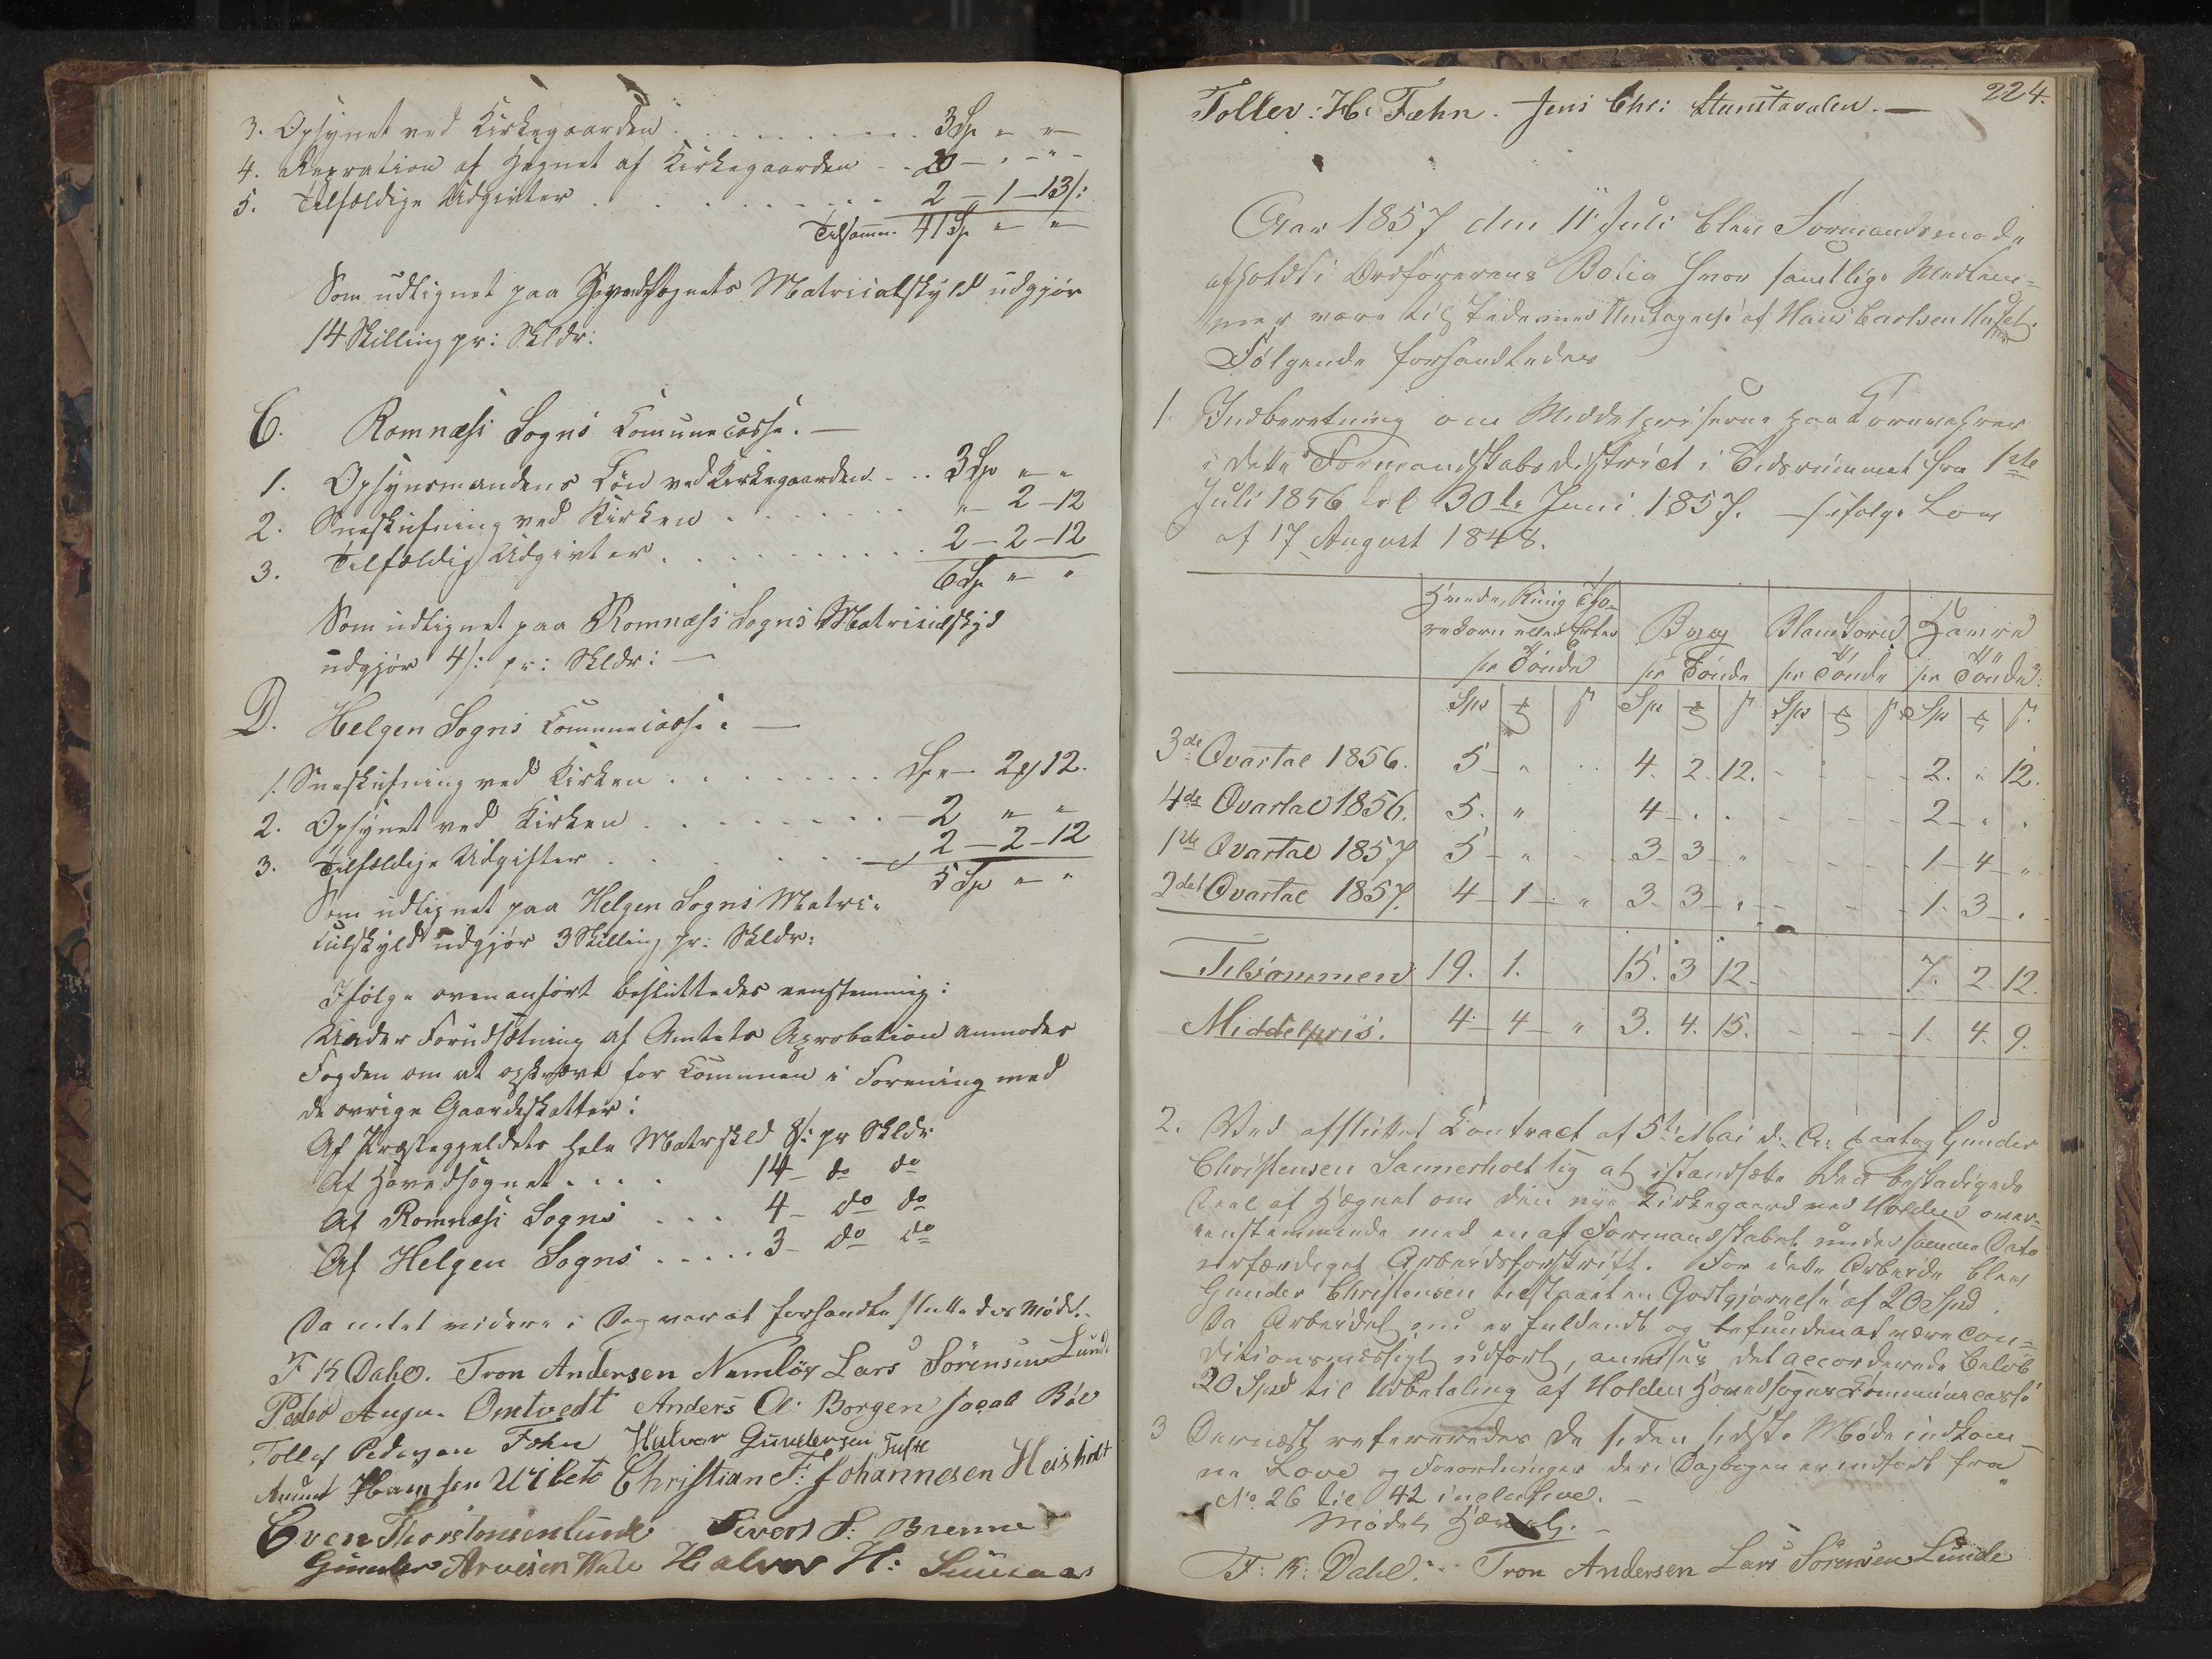 3. Opsynet ved Kirkegaarden . . . . . . . . . 3 Sp " "
4. Repration af Hegnet af Kirkegaarden - - 20 - " - " -
5. Tilfældige Udgivter . . . . . . . . . 2 - 1 - 13 s:
Tilsamm. 41 Sp " "
Som udlignet paa Hovedsognets Matriculskyld udgjør
14 Skilling pr: Skldr:
C. Romnæsi Sogns Comunecasse. —
1. Opsynsmandens Løn ved Kirkegaarden . . . 3 Sp " "
2. Sneskufning ved Kirken . . . . . . . " - 2 - 12
3. Tilfældig Udgivter . . . . . . . . . 2 - 2 - 12
6 Sp " "
Som udlignet paa Romnæsi Sogns Matriculskyld
udgjør 4 s: pr: Skldr: —
D. Helgen Sogns Communecasse. —
1. Sneskufning ved Kirken . . . . . . . Sp " - 2 12.
2. Opsynet ved Kirken . . . . . . . . - 2 " "
3. Tilfældige Udgifter . . . . . . . . 2 - 2 - 12
5 Sp " "
Som udlignet paa Helgen Sogns Matri-
culskyld udgjør 3 Skilling pr: Skldr:
Ifølge ovenanført besluttedes eenstemmig:
Under Forudsætning af Amtets Aprobation anmodes
Fogden om at opkræve for Communen i Forening med
de øvrige Gaardeskatter:
Af Præstegjeldets hele Matrskld 8 s: pr Skldr
Af Hovedsognet . . . . 14 - do do
Af Romnæsi Sogns . . . 4 - do do
Af Helgen Sogns . . . . . 3 - do do
Da intet videre i Dag var at forhandle sluttedes Mødet.
F K Dahl. Tron Andersen Namløs Lars Sörensen Lunde
Peder Augu. Omtvedt Anders A: Borgen Jacob Böe
Tollef Pedersen Fehn Halvor Gundersen Tufte
Amund Hansen Uibeto Christian F: Johannesen Heisholt
Even Thorstensen lunde Sivert S: Brenne
Gunder Arvesen Hale Halvor H:
224.
Tollev: H: Fæhn. Jens Chr: —
Aar 1857 den 11 Juli blev Formandsmøde
afholdt i Ordførerens Bolig hvor samtlige Medlem-
mer vare tilstede med Undtagelse af Hans Carlsen
Følgende forhandledes
1. Indberetning om Middelpriserne paa Kornvahrer
i dette Formandskabsdistrict i Tidsrummet fra 1ste
Juli 1856 til 30te Juni 1857. — ifølge Lov
af 17 August 1848.
Hvede, Ruug
vekorn eller Erter Byg Blandkorn Havre
pr Tönde pr Tönde pr Tönde pr Tönde
Sps s Sps s Sps s Sps s
3de Qvartal 1856. 5 - " - - 4. 2. 12. - - - 2. " 12.
4de Qvartal 1856. 5. " 4 - " " - - - 2 - " "
1ste Qvartal 1857 5 - " - 3 - 3 - " - - - 1 - 4 - "
2det Qvartal 1857. 4 - 1 - " 3. 3 - " - - - 1. 3 - "
Tilsammen 19. 1. 15. 3 12. 7. 2. 12.
Middelpris. 4 - 4 - " 3. 4. 15. - - - 1. 4. 9.
2. Ved afsluttet Contract af 5te Mai d: A: paatog Gunder
Christensen Sannerholt sig at istandsætte den beskadigede
Deel af Hegnet om den nye Kirkegaard ved Holden over-
eenstemmende med en af Formandskabet under samme Dato
utfærdiget Arbeidsforskrift. For dette Arbeide blev
Gunder Christensen tilstaaet en Godtgjørelse af 20 Spd.
Da Arbeidet nu er fuldendt og befunden at være con-
ditionsmæssigt udført, anvises det accorderede Beløb
20 Spd til Udbetaling af Holden Hovedsogns Communecasse
3 Dernæst refereredes de siden sidste Møde indkom-
ne Love og Forordninger der i Dagbogen er indført fra
No 26 til 42 inclusive. —
Mødet Hævet. —
F: K: Dahl. Tron Andersen Lars Sörensen Lunde